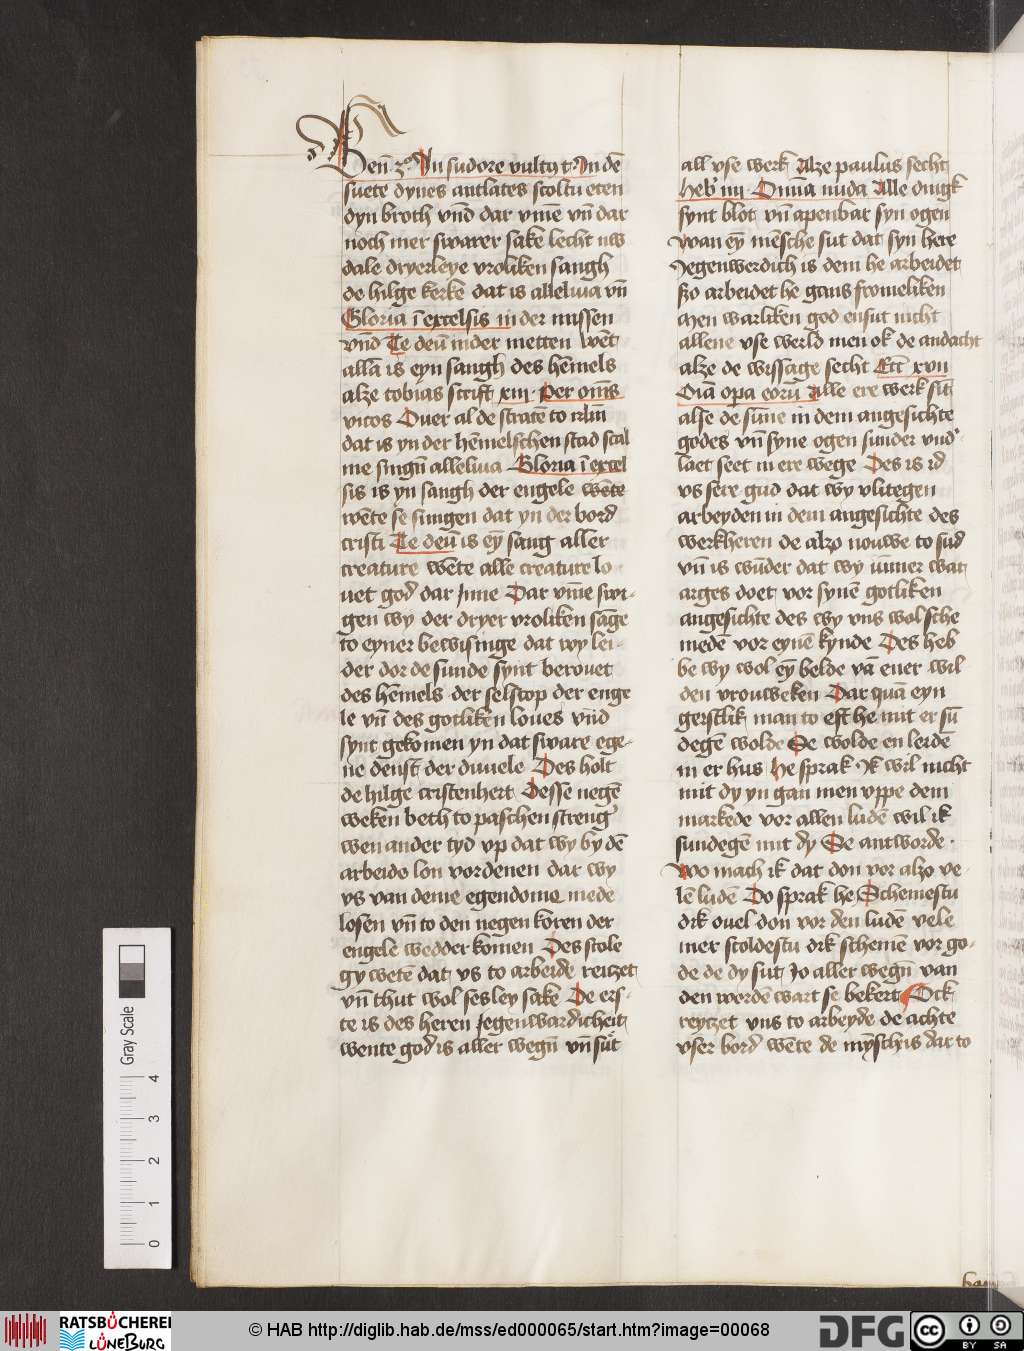 Gen̄ 3º In sudore vultus t. In dē
suete dynes antlates scoltu eten
dyn broth vn̄d dar vm̄e vn̄ dar
noch mer swarer sake lecht uw
dale dryerleye vroliken sangh
de hilge kerke dat is alleluia vn̄
Gloria ī excelsis in der missen
vn̄d Te deū in der metten wēt
allā is eyn sangh des hēmels
alze tobias scrift xiij Per om̄s
vicos Ouer al de stratē to irlm̄
dat is yn der hēmelschen stad scal
me singn̄ alleluia Gloria ī excel
sis is yn sangh der engele
wēte se sungen dat yn der bord
cristi Te deū is eȳ sang aller
creature wēte alle creature lo
uet god dar Inne Dar vm̄e swi-
gen wy der dryer vroliken sāge
to eyner bewisinge dat wy lei-
der dor de sunde synt berouet
des hēmels der selscop der enge
le vn̄ des gotlikēn loues vn̄d
synt gekomen yn dat sware ege-
ne denst der duuele Des holt
de hilge cristenhert Desse negē
weken beth to paschen streng'
wen ander tyd vp dat wy by dē
arbeido lon vordenen dat wy
vs van deme egendome mede
losen vn̄ to den negen koren der
engele wedder komen Des scole
gy wetē dat vs to arbeide reitzet
vn̄ thut wol sesley sake De ers-
te is des heren Jegenwardicheit
wente god is aller wegn̄ vn̄ sut
all vse werk Alze paulus secht
Heb' iiij Om̄ia nuda Alle dingk
synt blot vn̄ apenbar syn ogen
wan eȳ mēsche sut dat syn here
Jegenwerdich is dem he arbeidet
szo arbeidet he gans fromeliken
Men warliken god ensut nicht
allene vse werld men ok de andacht
alze de wissage secht Ecc̄ xvij
Oīa opa eorū Alle ere werk sit
alse de sūne in dem angesichte
godes vn̄ syne ogen sunder vnd'
laet seet in ere wege Des is id
vs sere gud dat wy vlitegen
arbeyden in dem angesichte des
werkheren de alzo nouwe to sud
vn̄ is wūder dat wy ūmer wat
arges doet vor synē gotliken
angesichte des wy vns wol sche
medē vor eynē kynde Des heb
be wy wol eȳ belde vā ener wil
den vrouweken Dar quā eyn
gerstlik man to eft he mit er sū
degē wolde Se wolde en lerdē
in er hus He sprak Ik wil nicht
mit dy yn gan men vppe dem
markede vor allen ludē wil ik
sundegē mit dy Se antworde
Wo mach ik dat don vor alzo ve-
lē ludē Do sprak he Schemestu
dik ouel don vor den ludē vele
mer scoldestu dik schemē vor go-
de de dy sut Jo aller wegn̄ van
den wordē wart se bekert Ock
reytzet vns to arbeyde de achte
vser bord wēte de mysch is dar to
Gray Scale
4
3
2
1
0
RATSBÜCHEREI
LÜNEBURG
© HAB http://diglib.hab.de/mss/ed000065/start.htm?image=00068
DFG
CC
BY SA